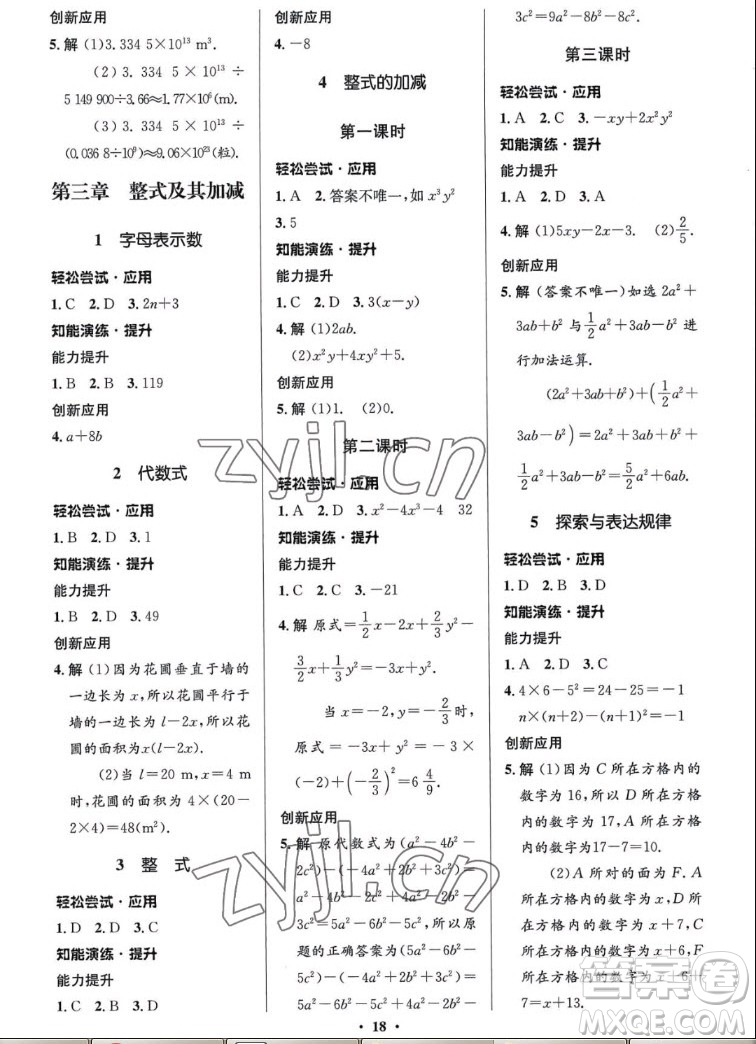 创新应用
5. 解 (1)3.334 5×10¹³ m³.
(2) 3.334 5 × 10¹³ ÷
5 149 900÷3.66≈1.77×10⁶(m).
(3) 3.334 5 × 10¹³ ÷
(0.036 8÷10⁹)≈9.06×10²³(粒).
第三章 整式及其加减
1 字母表示数
轻松尝试·应用
1. C 2. D 3. 2n+3
知能演练·提升
能力提升
1. B 2. B 3. 119
创新应用
4. a+8b
2 代数式
轻松尝试·应用
1. B 2. D 3. 1
知能演练·提升
能力提升
1. B 2. D 3. 49
创新应用
4. 解 (1)因为花圃垂直于墙的
一边长为x,所以花圃平行于
墙的一边长为l-2x,所以花
圃的面积为x(l-2x).
(2)当 l=20 m, x=4 m
时,花圃的面积为 4×(20-
2×4)=48(m²).
3 整 式
轻松尝试·应用
1. D 2. D 3. C
知能演练·提升
能力提升
1. C 2. B 3. D
创新应用
4. -8
4 整式的加减
第一课时
轻松尝试·应用
1. A 2. 答案不唯一,如 x³y²
3. 5
知能演练·提升
能力提升
1. C 2. D 3. 3(x-y)
4. 解 (1)2ab.
(2)x²y+4xy²+5.
创新应用
5. 解 (1)1. (2)0.
第二课时
轻松尝试·应用
1. A 2. D 3. x²-4x³-4 32
知能演练·提升
能力提升
1. C 2. C 3. -21
4. 解 原式=1/2x-2x+2/3y²-
3/2x+1/3y²=-3x+y².
当 x=-2,y=-2/3时,
原式=-3x+y²=-3×
(-2)+(-2/3)²=6 4/9.
创新应用
5. 解 原代数式为(a²-4b²-
2c²)-(-4a²+2b²+3c²)=
a²-4b²-2c²+4a²-2b²-
3c²=5a²-6b²-5c²,所以原
题的正确答案为(5a²-6b²-
5c²)-(-4a²+2b²+3c²)=
5a²-6b²-5c²+4a²-2b²-
3c²=9a²-8b²-8c².
第三课时
轻松尝试·应用
1. A 2. C 3. -xy+2x²y²
知能演练·提升
能力提升
1. A 2. C 3. A
4. 解 (1)5xy-2x-3. (2)2/5.
创新应用
5. 解 (答案不唯一)如选2a²+
3ab+b²与1/2a²+3ab-b²进
行加法运算.
(2a²+3ab+b²)+(1/2a²+
3ab-b²)=2a²+3ab+b²+
1/2a²+3ab-b²=5/2a²+6ab.
5 探索与表达规律
轻松尝试·应用
1. D 2. B 3. D
知能演练·提升
能力提升
1. A 2. D 3. C
4. 4×6-5²=24-25=-1
n×(n+2)-(n+1)²=-1
创新应用
5. 解 (1)因为C所在方格内的
数字为16,所以D所在方格
内的数字为17,A所在方格
内的数字为17-7=10.
(2)A所对的面为F.A
所在方格内的数字为x,C所
在方格内的数字为x+7,D
所在方格内的数字为x+6,F
所在方格内的数字为x+6+
7=x+13.
· 18 ·
zyjl.cn
zyjl.cn
答案卷
MXQE.COM